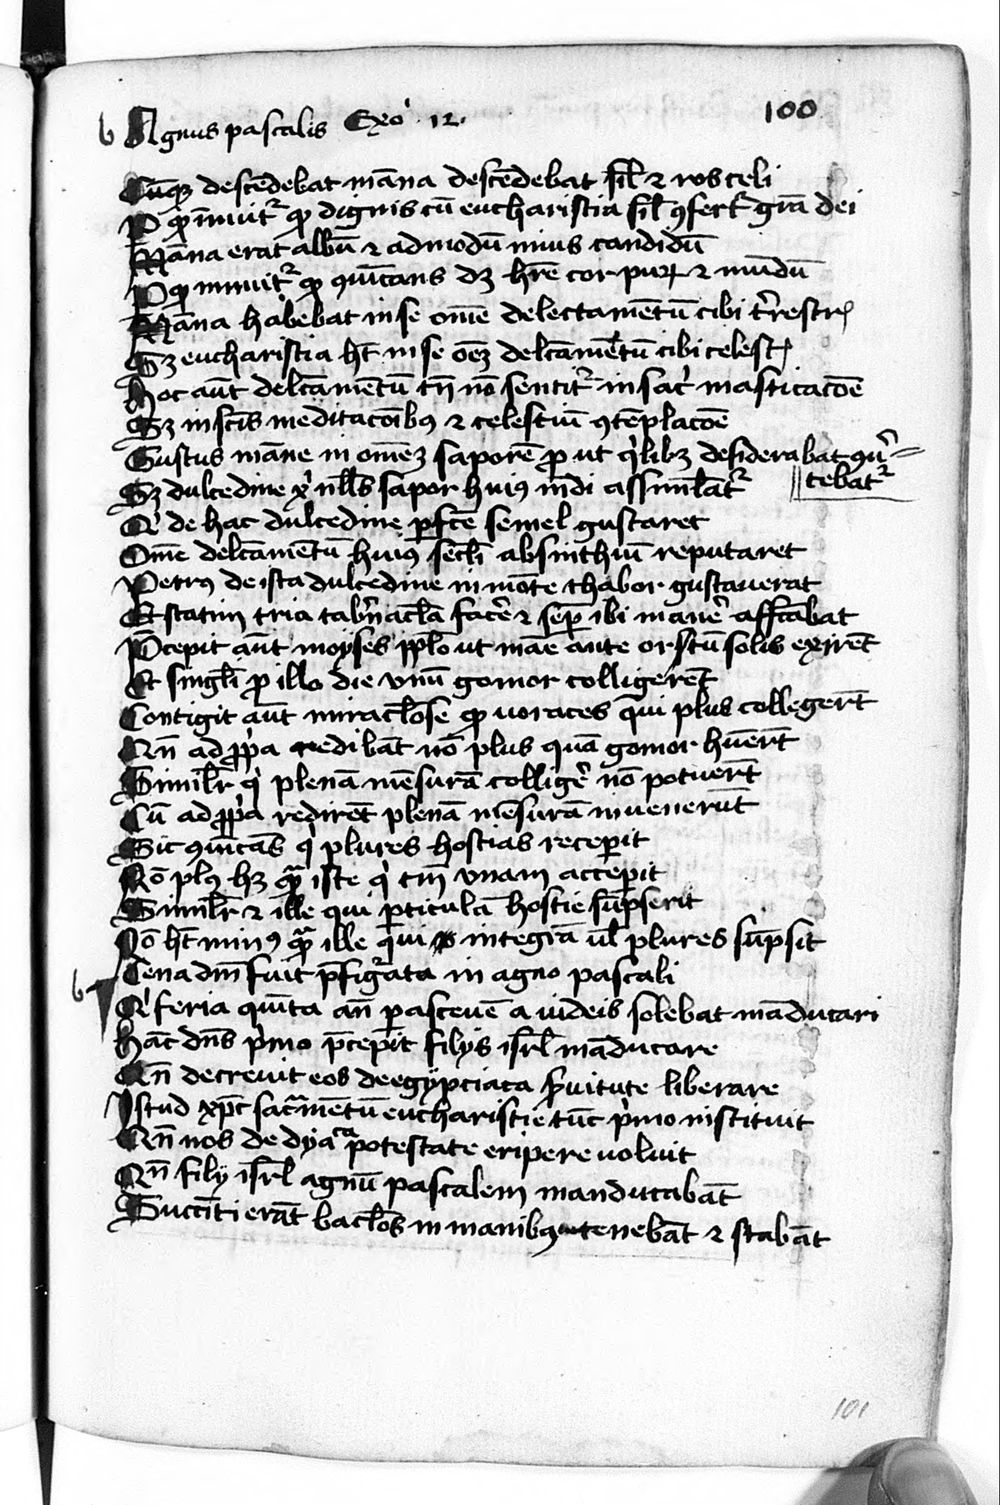 b Agnus pascalis Exo 12. 100
Cūq̄ descēdebat māna descēdebat sil̄ ⁊ ros celi
P qd̄ īnuitʳ qd̄ dignis cū eucharistia sil̄ ꝯfertʳ gr̄a dei
Māna erat albū ⁊ admodū niuis candidū
P qd̄ innuitʳ qd̄ ꝯmūicans dꝫ hr̄e cor purū ⁊ mūdū
Māna habebat in se om̄e delectamētū cibi tr̄estrꝭ
Sꝫ eucharistia hꝫ in se oēꝫ delc̄amētū cibi celestꝭ
Hoc aut̄ delc̄amētū tn̄ nō sentitʳ in sac̄ masticacōe
Sꝫ in sc̄is meditacōibꝯ ⁊ celestiū ꝯtēplacōe
Gustus māne in om̄eꝫ saporē ꝓ ut qͥlibꝫ desiderabat ꝯūͬ=
Sꝫ dulcedine xͥ nll̄s sapor huiꝯ mūdi assimilat̄ʳ || tebatʳ
Qͥ de hac dulcedine ꝑfc̄e semel gustaret
Om̄e delc̄amētū huiꝯ sec̄li absinthiū reputaret
Petrꝯ de ista dulcedine in mōte thabor gustauerat
Et statim tria tab̄nac̄la fac̄e ⁊ sēꝑ ibi manē affc̄abat
P̄cepit aut̄ moyses pp̄lo ut māe ante ortū solis exirēt
Et singl̄i ꝓ illo die vnū gomor colligerēt
Contigit aut̄ mirac̄lose qd̄ uoraces qui plus collegerūt
Qn̄ ad ꝓpͥa redibāt nō plus quā gomor hūerūt
Simil̄r qͥ plenā mēsurā colligē nō potuerūt
Cū ad ꝓpͥa redirēt plenā mēsurā inuenerūt
Sic ꝯmūicās qͥ plures hostias receperit
Nō plꝯ hꝫ qͣ̄ iste qͥ tm̄ vnam acceperit
Simil̄r ⁊ ille qui ꝑticulā hostie sūpserit
Nō hꝫ minꝯ qͣ̄ ille qui integrā ul̄ plures sūpsit
b Cena dn̄i fuit p̄figͥata in agno pascali
Qͥ feria quīta an̄ parasceuē a iudeis solebat māducari
Hāc dn̄s pͥmo p̄cepit filijs isrl̄ māducare
Qn̄ decreuit eos de egypciaca ẜuitute liberare
Istud xp̄c sac̄mētū eucharistie tūc pͥmo instituit
Qn̄ nos de dyaͨᵃ potestate eripere uoluit
Qn̄ filij isrl̄ agnū pascalem manducabāt
Succīti erāt bac̄los in manibꝯ tenebāt ⁊ stabāt
101